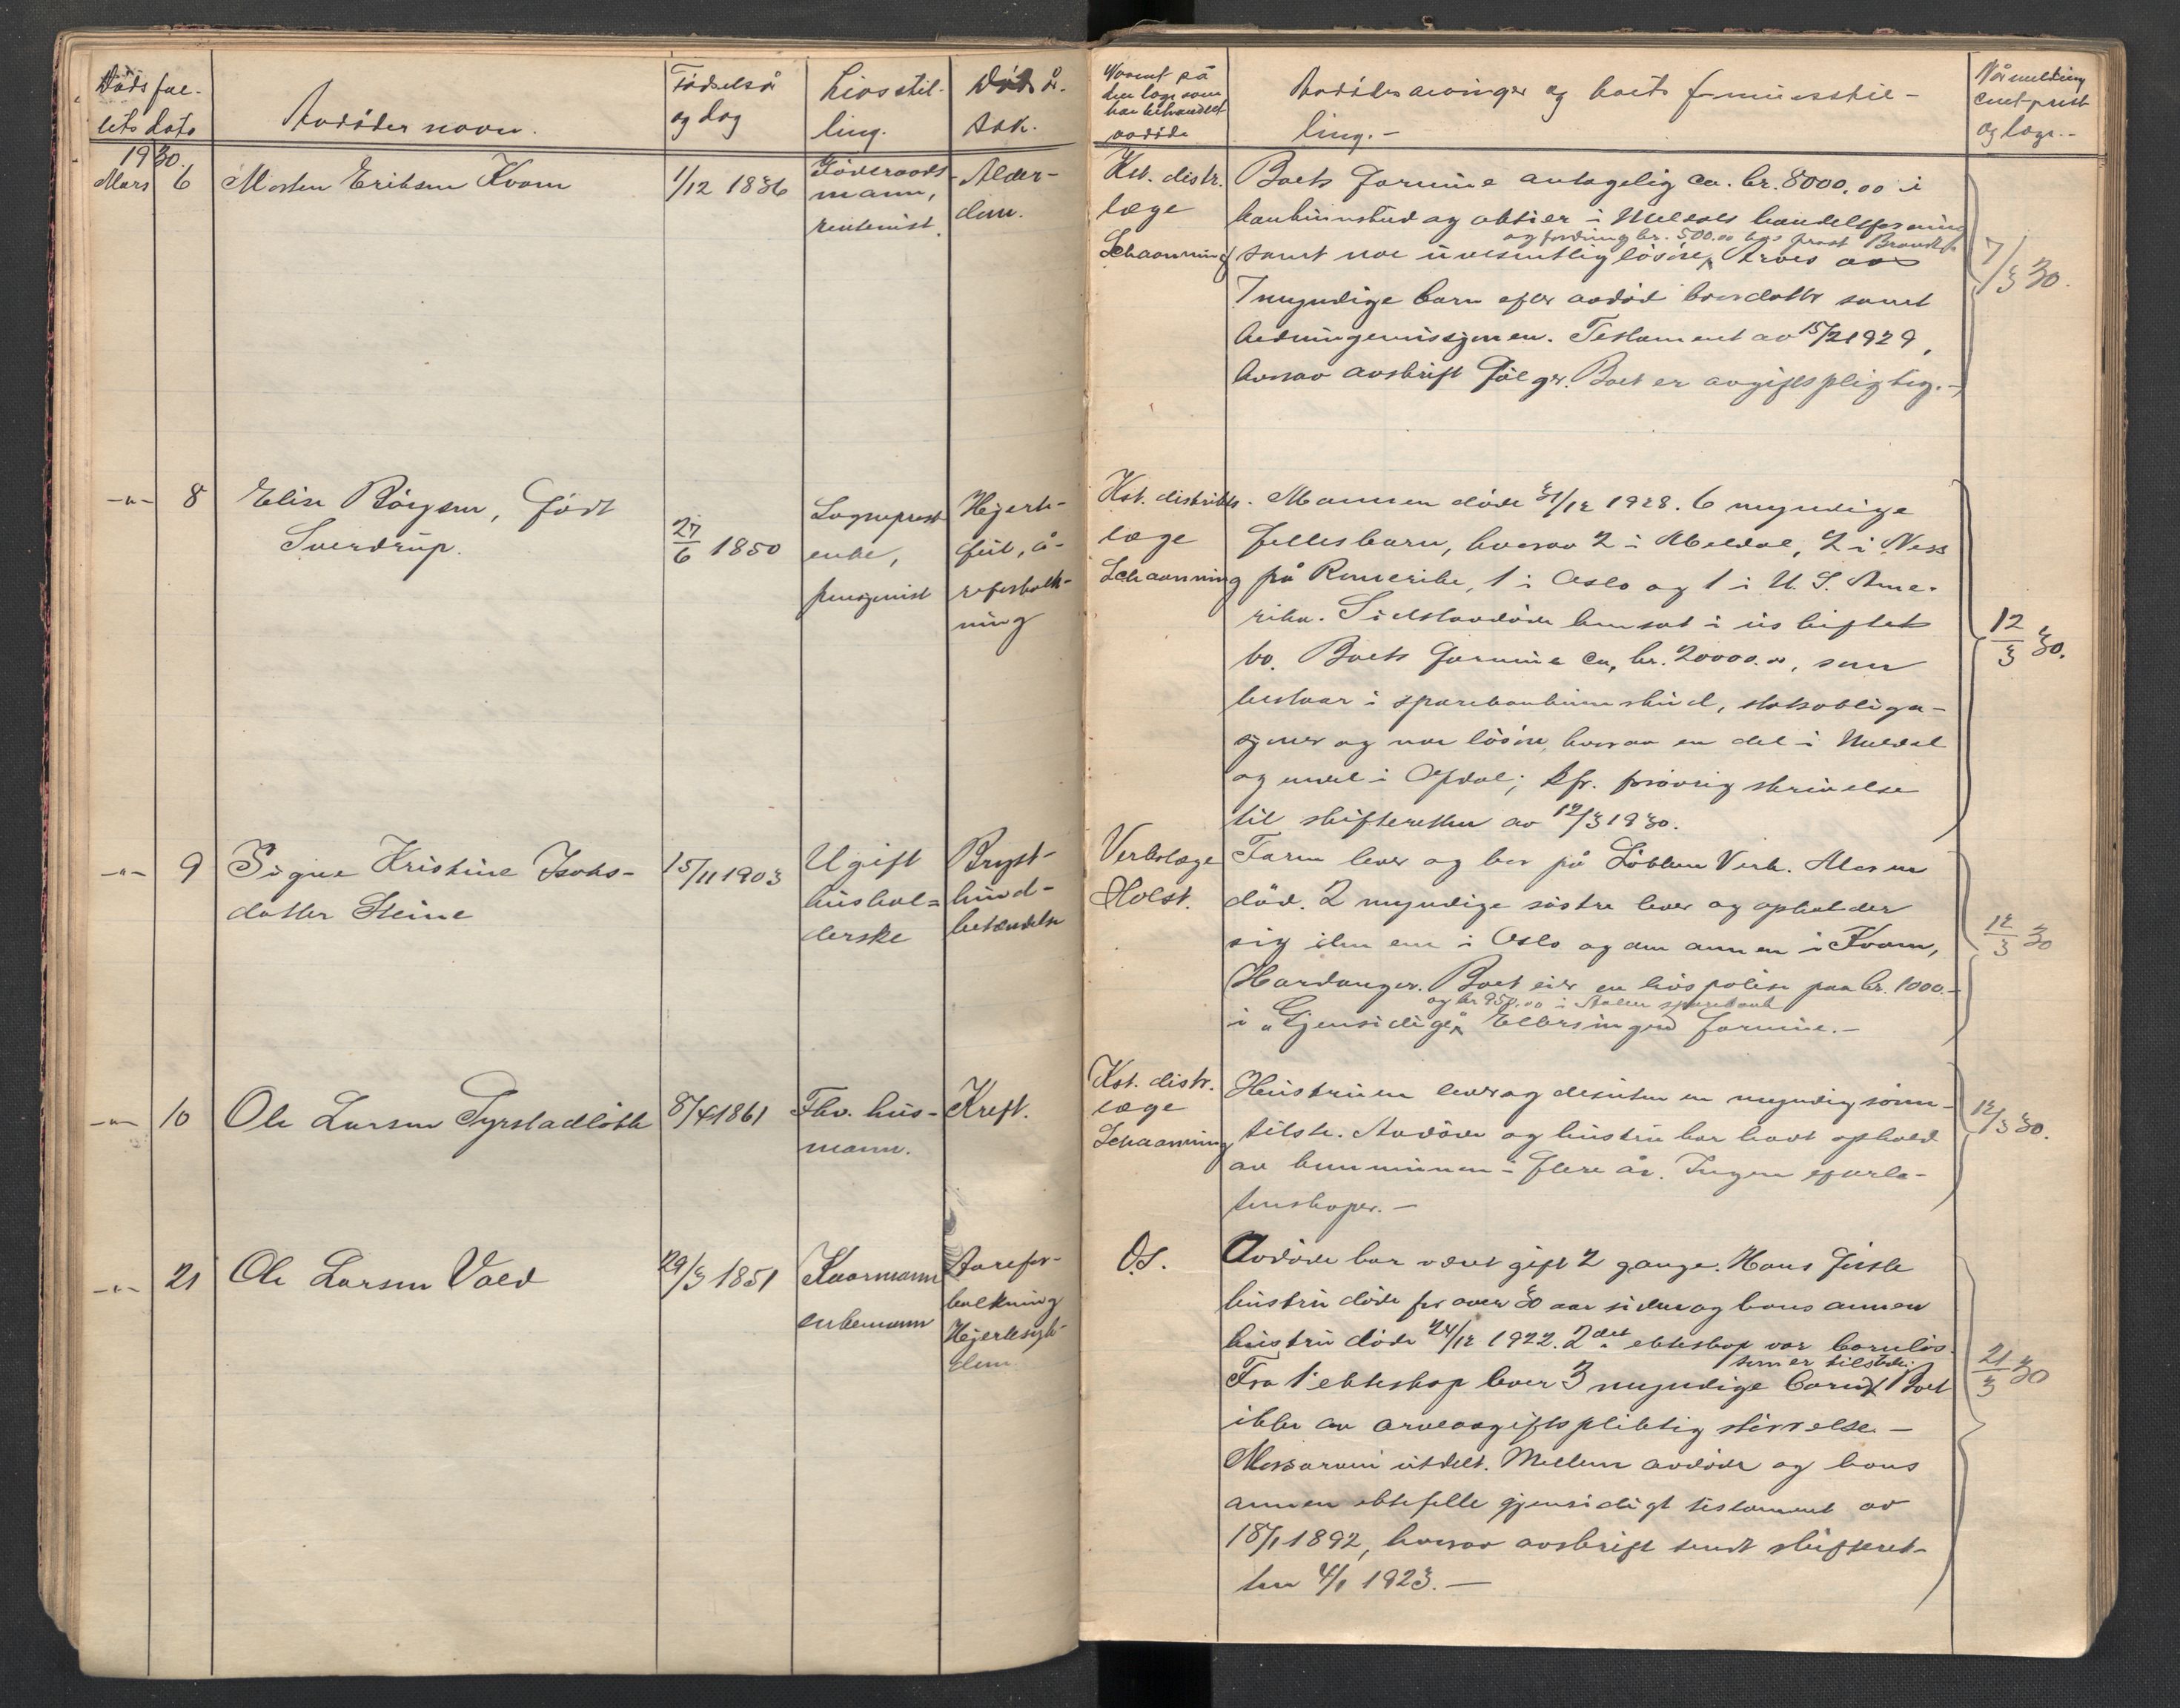 Dødsfal-
lets dato
Avdødes navn.
Fødselsår
og dag
Livsstil-
ling.
Døds år-
sak.
Navnet på
den læge som
har behandlet
avdøde
Avdødes arvinger og boets formuesstil-
ling.-
Når melding
sendt prest
og læge.-
1930.
Mars 6
Morten Eriksen Kvam
1/12 1836
Föderaads-
mann,
rentenist.
Alder-
dom.
Kst. distr.
læge
Schaanning
Boets formue antagelig ca. kr. 8000,00 i
bankinnskud og aktier i Meldals handelsforening
og fordring kr. 500.00 hos prost Brandt
samt noe uvesentlig løsöre, Arves av
7 myndige barn efter avdød brordatter samt
hedningemissjonen. Testament av 15/2 1929,
hvorav avskrift følger. Boet er avgiftspligtig.-
7/3 30.
-"- 8
Elise Böigsen, født
Sverdrup.
27/6 1850
Sogneprest
enke,
pensjonist
Hjerte-
feil, å-
reforkalk-
ning
Kst. distrikts-
læge
Schaanning
Mannen döde 31/12 1928. 6 myndige
fellesbarn, hvorav 2 i Meldal, 2 i Ness
på Romerike, 1 i Oslo og 1 i U. S. Ame-
rika. Sidstavdöde hensat i uskiftet
bo. Boets formue ca, kr. 20000.00, som
bestaar i sparebankinnskud, statsobliga-
sjoner og noe lösöre, hvorav en del i Meldal
og en del i Opdal; kfr. forövrig skrivelse
til skifteretten av 12/3 1930.
12/3 30.
-"- 9
Signe Kristine Isaks-
datter Steine
15/11 1903
Ugift
hushol-
derske
Bryst-
hind-
betændelse
Verkslæge
Holst.
Faren lever og bor på Lökken Verk. Moren
död. 2 myndige söstre lever og opholder
sig den ene i Oslo og den annen i Kvam,
Hardanger. Boet eier en livspolise paa kr. 1000.-
og kr 950.00 i sparebank
i "Gjensidige", Ellers ingen formue.-
12/3 30
-"- 10
Ole Larsen Syrstadløkk
8/4 1861
Fhv. hus-
mann.
Kreft.
Kst. distr.
læge
Schaanning
Hustruen lever og desuten en myndig sönn
tilste. Avdöde og hustru har havt ophold
av kommunen i flere år. Ingen efterla-
tenskaper.-
12/3 30.
-"- 21
Ole Larsen Vold
29/3 1851
Kaarmann
enkemann
Aarefor-
kalkning
Hjertesyk-
dom
D.S.
Avdöde har været gift 2 gange. Hans første
hustru döde for over 30 aar siden og hans annen
hustru döde 24/12 1922. 2det ekteskap var barnlös.
som er tilstede.
Fra 1 ekteskap lever 3 myndige barn, Boet
ikke av arveavgiftspliktig störrelse.-
Morsarven utdelt. Mellem avdöde og hans
annen ektefelle gjensidigt testament av
18/1 1892, hvorav avskrift sendt skifteret-
ten 4/1 1923.-
21/3 30